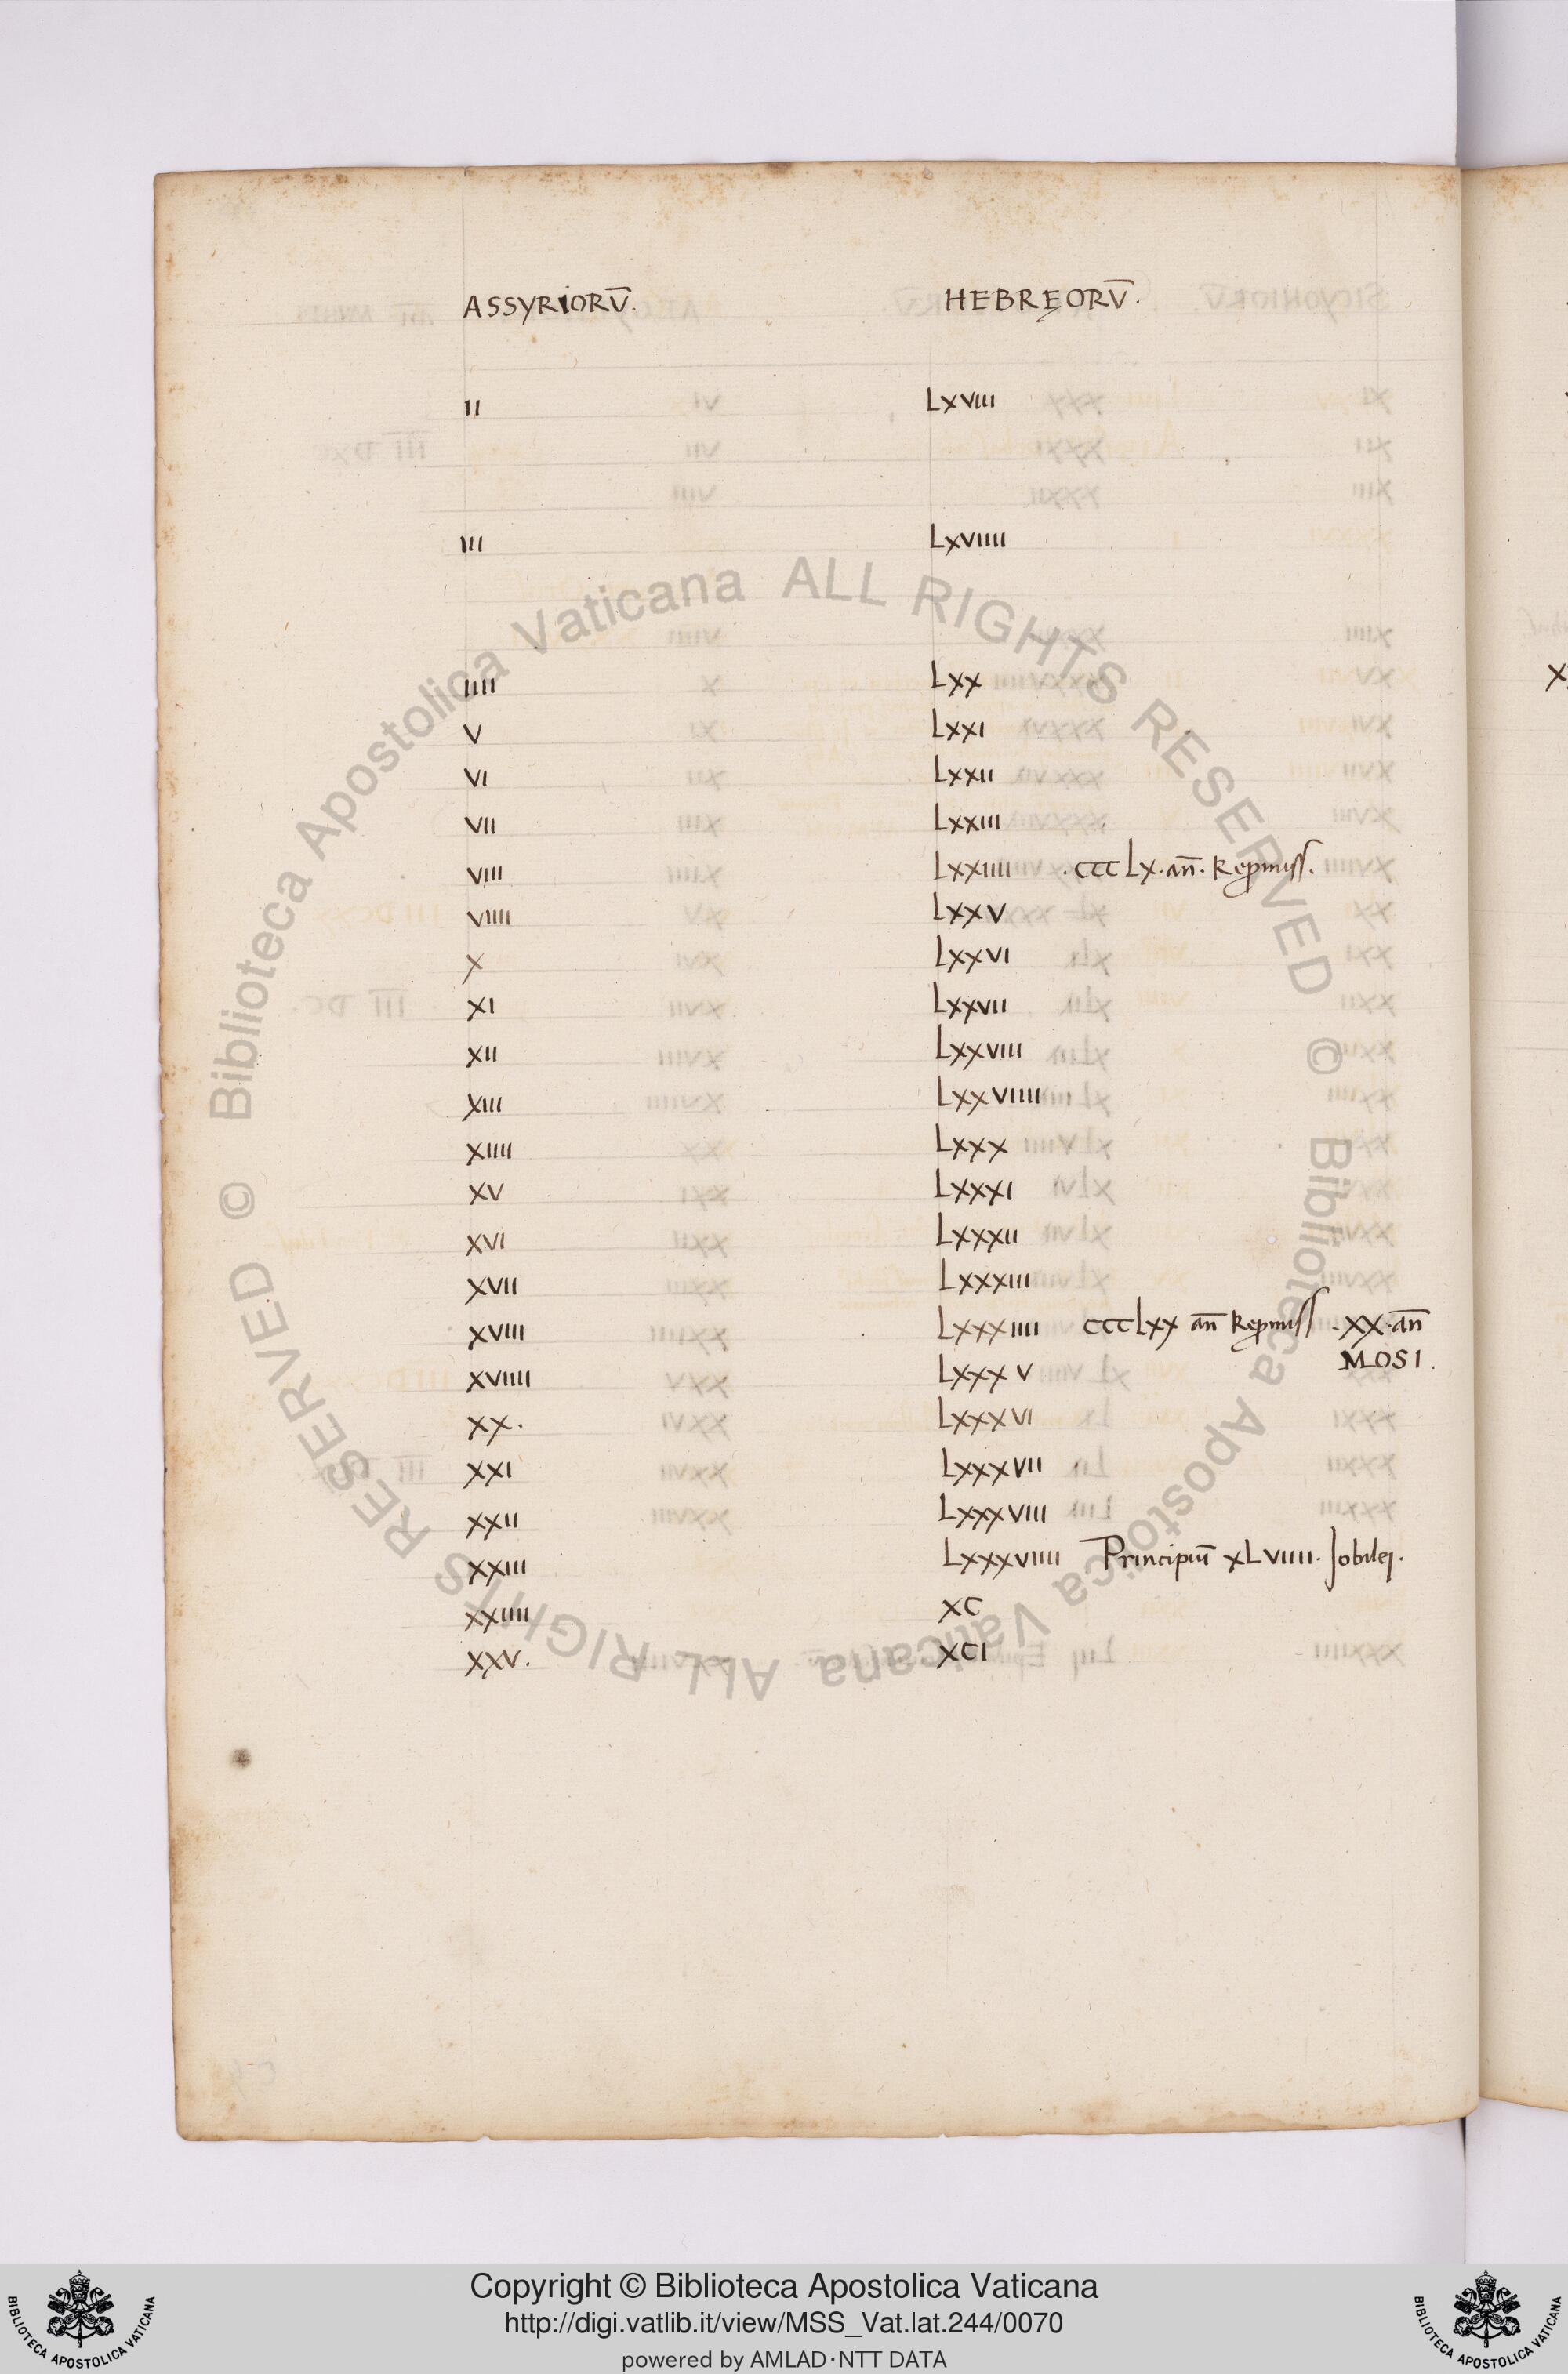 ASSYRIORV̄. HEBRĘORV̄.
II LXVIII
III LXVIIII
IIII LXX
V LXXI
VI LXXII
VII LXXIII
VIII LXXIIII .CCCLX. an̄. Repmiss.
VIIII LXXV
X LXXVI
XI LXXVII
XII LXXVIII
XIII LXXVIIII
XIIII LXXX
XV LXXXI
XVI LXXXII
XVII LXXXIII
XVIII LXXXIIII CCCLXX an̄ Repmiss .XX. an̄
MOSI.
XVIIII LXXXV
XX. LXXXVI
XXI LXXXVII
XXII LXXXVIII
XXIII LXXXVIIII Principiū XLVIIII. Jobilei.
XXIIII XC
XXV. XCI
© Biblioteca Apostolica Vaticana ALL RIGHTS RESERVED
© Biblioteca Apostolica Vaticana ALL RIGHTS RESERVED
Copyright © Biblioteca Apostolica Vaticana
http://digi.vatlib.it/view/MSS_Vat.lat.244/0070
powered by AMLAD·NTT DATA
BIBLIOTECA APOSTOLICA VATICANA
BIBLIOTECA APOSTOLICA VATICANA